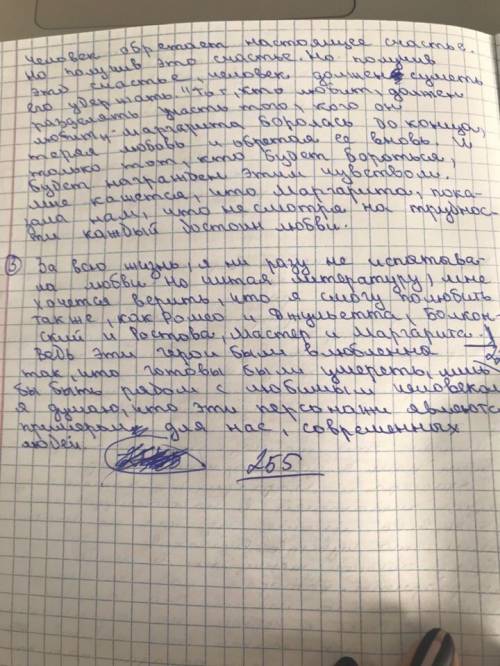 человек обретает настоящее счастье.
Но получив это счастье. Но получив
это счастье, человек должен суметь
его удержать. "Тот, кто любит, должен
разделять участь того, кого он
любит" - Маргарита боролась до конца,
теряя любовь и обретая её вновь. И
только тот, кто будет бороться,
будет награжден этим чувством.
Мне кажется, что Маргарита, пока-
зала нам, что не смотря на труднос-
ти каждый достоин любви.
③ За всю жизнь, я ни разу не испытава-
ла любви. Но читая литературу, мне
хочется верить, что я смогу полюбить
также, как Ромео и Джульетта, Болкон-
ский и Ростова, Мастер и Маргарита.
Ведь эти герои были влюбленна
так, что готовы были умереть, лишь
бы быть рядом с любимым человеком
я думаю, что эти персонажи являются
примером для нас, современных
людей.
255